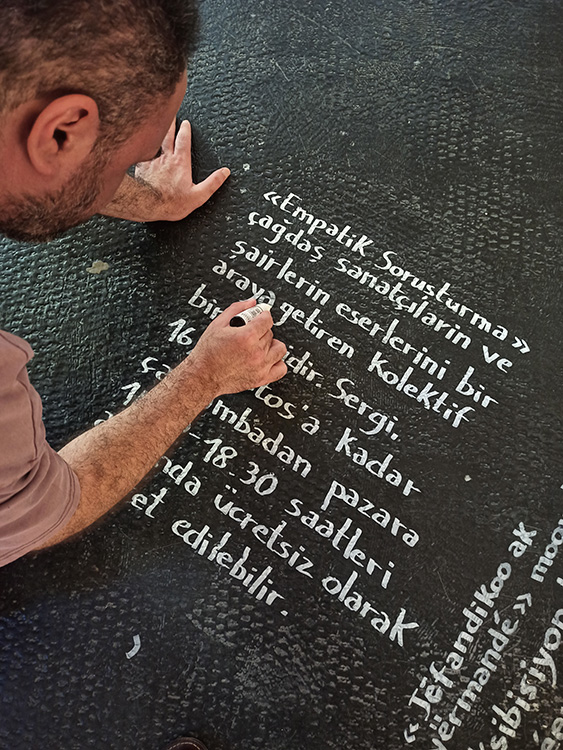 «Empatik Sorusturma»
çağdaş sanatçıların ve
şairlerin eserlerini bir
araya getiren kolektif
bir dir. Sergi,
16 tos'a kadar
pazara
18.30 saatleri
ücretsiz olarak
et edilebilir.
«Jëfandikoo ak